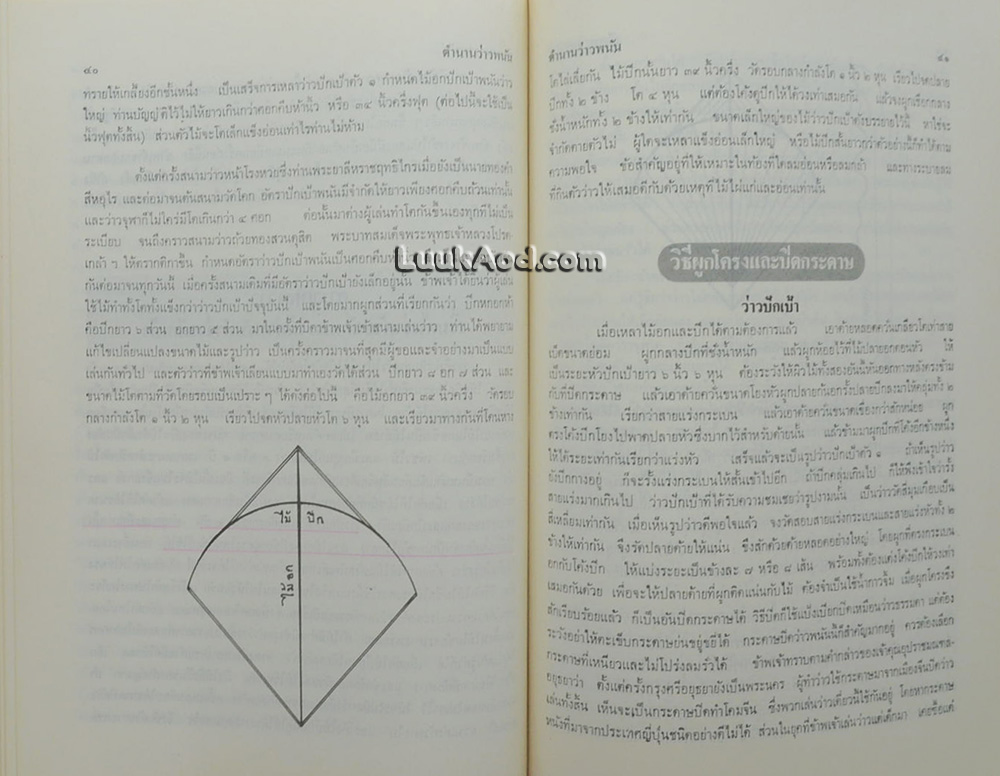 ๔๐
ตำนานว่าวพนัน
ทรายให้เกลี้ยงอีกชั้นหนึ่ง เป็นเสร็จการเหลาว่าวปักเป้าตัว ๑ กำหนดไม้อกปักเป้าพนันว่าว
ใหญ่ ท่านบัญญัติไว้ไม่ให้ยาวเกินกว่าศอกคืบห้านิ้ว หรือ ๓๔ นิ้วครึ่งฟุต (ต่อไปนี้จะใช้เป็น
นิ้วฟุตทั้งสิ้น) ส่วนตัวไม้จะโตเล็กแข็งอ่อนเท่าไรท่านไม่ห้าม
ตั้งแต่ครั้งสนามว่าวหน้าโรงหวยซึ่งท่านพระยาลีหราชฤทธิไกรเมื่อยังเป็นนายทองคำ
สีหอุไร และต่อมาจนต้นสนามวัดโคก อัตราปักเป้าพนันมีจำกัดให้ยาวเพียงศอกคืบถ้วนเท่านั้น
และว่าวจุฬาก็ไม่ใคร่มีโตเกินกว่า ๔ ศอก ต่อนั้นมาต่างผู้เล่นทำโตกันขึ้นเองทุกทีไม่เป็น
ระเบียบ จนถึงคราวสนามว่าวถ้วยทองสวนดุสิต พระบาทสมเด็จพระพุทธเจ้าหลวงโปรด
เกล้า ๆ ให้ตรากติกาขึ้น กำหนดอัตราว่าวปักเป้าพนันเป็นศอกคืบห้า
กันต่อมาจนทุกวันนี้ เมื่อครั้งสนามเดิมที่มีอัตราว่าวปักเป้ายังเล็กอยู่นั้น ข้าพเจ้าได้ยินว่าผู้เล่น
ใช้ไม้ทำทั้งโตทั้งแข็งกว่าว่าวปักเป้าปัจจุบันนี้ และโดยมากผูกส่วนที่เรียกกันว่า ปีกหกอกห้า
คือปีกยาว ๖ ส่วน อกยาว ๕ ส่วน มาในครั้งที่บิดาข้าพเจ้าเข้าสนามเล่นว่าว ท่านได้พยายาม
แก้ไขเปลี่ยนแปลงขนาดไม้และรูปว่าว เป็นครั้งคราวมาจนที่สุดมีผู้ขอและจำอย่างมาเป็นแบบ
เล่นกันทั่วไป และตัวว่าวที่ข้าพเจ้าเลื่อนแบบมาทำเองวัดได้ส่วน ปีกยาว ๘ อก ๗ ส่วน และ
ขนาดไม้โตตามที่วัดโดยรอบเป็นเปราะ ๆ ได้ดังต่อไปนี้ คือไม้อกยาว ๓๔ นิ้วครึ่ง วัดรอบ
กลางกำลังโต ๑ นิ้ว ๒ หุน เรียวไปจดหัวปลายหัวโต ๖ หุน และเรียวมาทางก้นที่โคนหาง
ไม้ ปีก
ไม้อก
ตำนานว่าวพนัน
๔๑
โตไล่เลี่ยกัน ไม้ปีกนั้นยาว ๓๙ นิ้วครึ่ง วัดรอบกลางกำลังโต ๑ นิ้ว ๒ หุน เรียวไปจดปลาย
ปีกทั้ง ๒ ข้าง โต ๔ หุน แต่ต้องโค้งดูปีกให้ได้วงเท่าเสมอกัน แล้วจงผูกเชือกกลาง
ชั่งน้ำหนักทั้ง ๒ ข้างให้เท่ากัน ขนาดเล็กใหญ่ของไม้ว่าวปักเป้าดังบรรยายไว้นี้ หาใช่จะ
จำกัดตายตัวไม่ ผู้ใดจะเหลาแข็งอ่อนเล็กใหญ่ หรือไม้ปีกสั้นยาวกว่าตัวอย่างนี้ก็ทำได้ตาม
ความพอใจ ข้อสำคัญอยู่ที่ให้เหมาะในท้องที่ใดลมอ่อนหรือลมกล้า และทางระบายลม
ที่กินตัวว่าวให้เสมอดีกับด้วยเหตุที่ไม้ไผ่แก่และอ่อนเท่านั้น
LuukAod.com
วิธีผูกโครงและปิดกระดาษ
ว่าวปักเป้า
เมื่อเหลาไม้อกและปีกได้ตามต้องการแล้ว เอาด้ายหลอดควั่นเกลียวโตเท่าสาย
เบ็ดขนาดย่อม ผูกกลางปีกที่ชั่งน้ำหนัก แล้วผูกห้อยไว้ที่ไม้ปลายอกตอนหัว ให้
เป็นระยะหัวปักเป้ายาว ๖ นิ้ว ๖ หุน ต้องระวังให้ผิวไม้ทั้งสองอันนี้หันออกทางหลังตรงข้าม
กับที่ปิดกระดาษ แล้วเอาด้ายควั่นขนาดโยงหัวผูกปลายก้นอกรั้งปลายปีกลงมาให้คลุ่มทั้ง ๒
ข้างเท่ากัน เรียกว่าสายแร่งกระเบน แล้วเอาด้ายควั่นขนาดเขื่องกว่าสักหน่อย ผูก
ตรงโค้งปีกโยงไปพาดปลายหัวซึ่งบากไว้สำหรับด้ายนั้น แล้วข้ามมาผูกปีกที่โค้งอีกข้างหนึ่ง
ให้ได้ระยะเท่ากันเรียกว่าแร่งหัว เสร็จแล้วจะเป็นรูปว่าวปักเป้าตัว ๑ ถ้าเห็นรูปว่าว
ยังปีกกางอยู่ ก็จะรั้งแร่งกระเบนให้สั้นเข้าไปอีก ถ้าปีกคลุ่มเกินไป ก็ให้พึงเข้าใจว่ารั้ง
สายแร่งมากเกินไป ว่าวปักเป้าที่ได้รับความชมเชยว่ารูปงามนั้น เป็นว่าววัดสี่มุมเกือบเป็น
สี่เหลี่ยมเท่ากัน เมื่อเห็นรูปว่าวดีพอใจแล้ว จงวัดสอบสายแร่งกระเบนและสายแร่งหัวทั้ง ๒
ข้างให้เท่ากัน จึงรัดปลายด้ายให้แน่น ซึ่งสักด้วยด้ายหลอดอย่างใหญ่ โดยผูกที่ตรงกระเบน
อกกับโค้งปีก ให้แบ่งระยะเป็นข้างละ ๗ หรือ ๘ เส้น พร้อมทั้งต้องแต่งโค้งปีกให้วงเท่า
เสมอกันด้วย เพื่อจะให้ปลายด้ายที่ผูกติดแน่นกับไม้ ต้องจำเป็นใช้น้ำกาวจิ้ม เมื่อผูกโครงขึง
สักเรียบร้อยแล้ว ก็เป็นอันปิดกระดาษได้ วิธีปิดก็ใช้แป้งเปียกปิดเหมือนว่าวธรรมดา แต่ต้อง
ระวังอย่าให้ตะเข็บกระดาษย่นขยุ่ยขยี้ได้ กระดาษปิดว่าวพนันนี้ก็สำคัญมากอยู่ ควรต้องเลือก
กระดาษที่เหนียวและไม่โปร่งลมรั่วได้ ข้าพเจ้าทราบตามคำกล่าวของเจ้าคุณอุปราชมณฑล
อยุธยาว่า ตั้งแต่ครั้งกรุงศรีอยุธยายังเป็นพระนคร ผู้ทำว่าวใช้กระดาษมาจากเมืองจีนปิดว่าว
เล่นทั้งสิ้น เห็นจะเป็นกระดาษปิดทำโคมจีน ซึ่งพวกเล่นว่าวเดี๋ยวนี้ใช้กันอยู่ โดยหากระดาษ
หนังที่มาจากประเทศญี่ปุ่นชนิดอย่างดีไม่ได้ ส่วนในยุคที่ข้าพเจ้าเล่นว่าวแต่เด็กมา เคยซื้อแต่